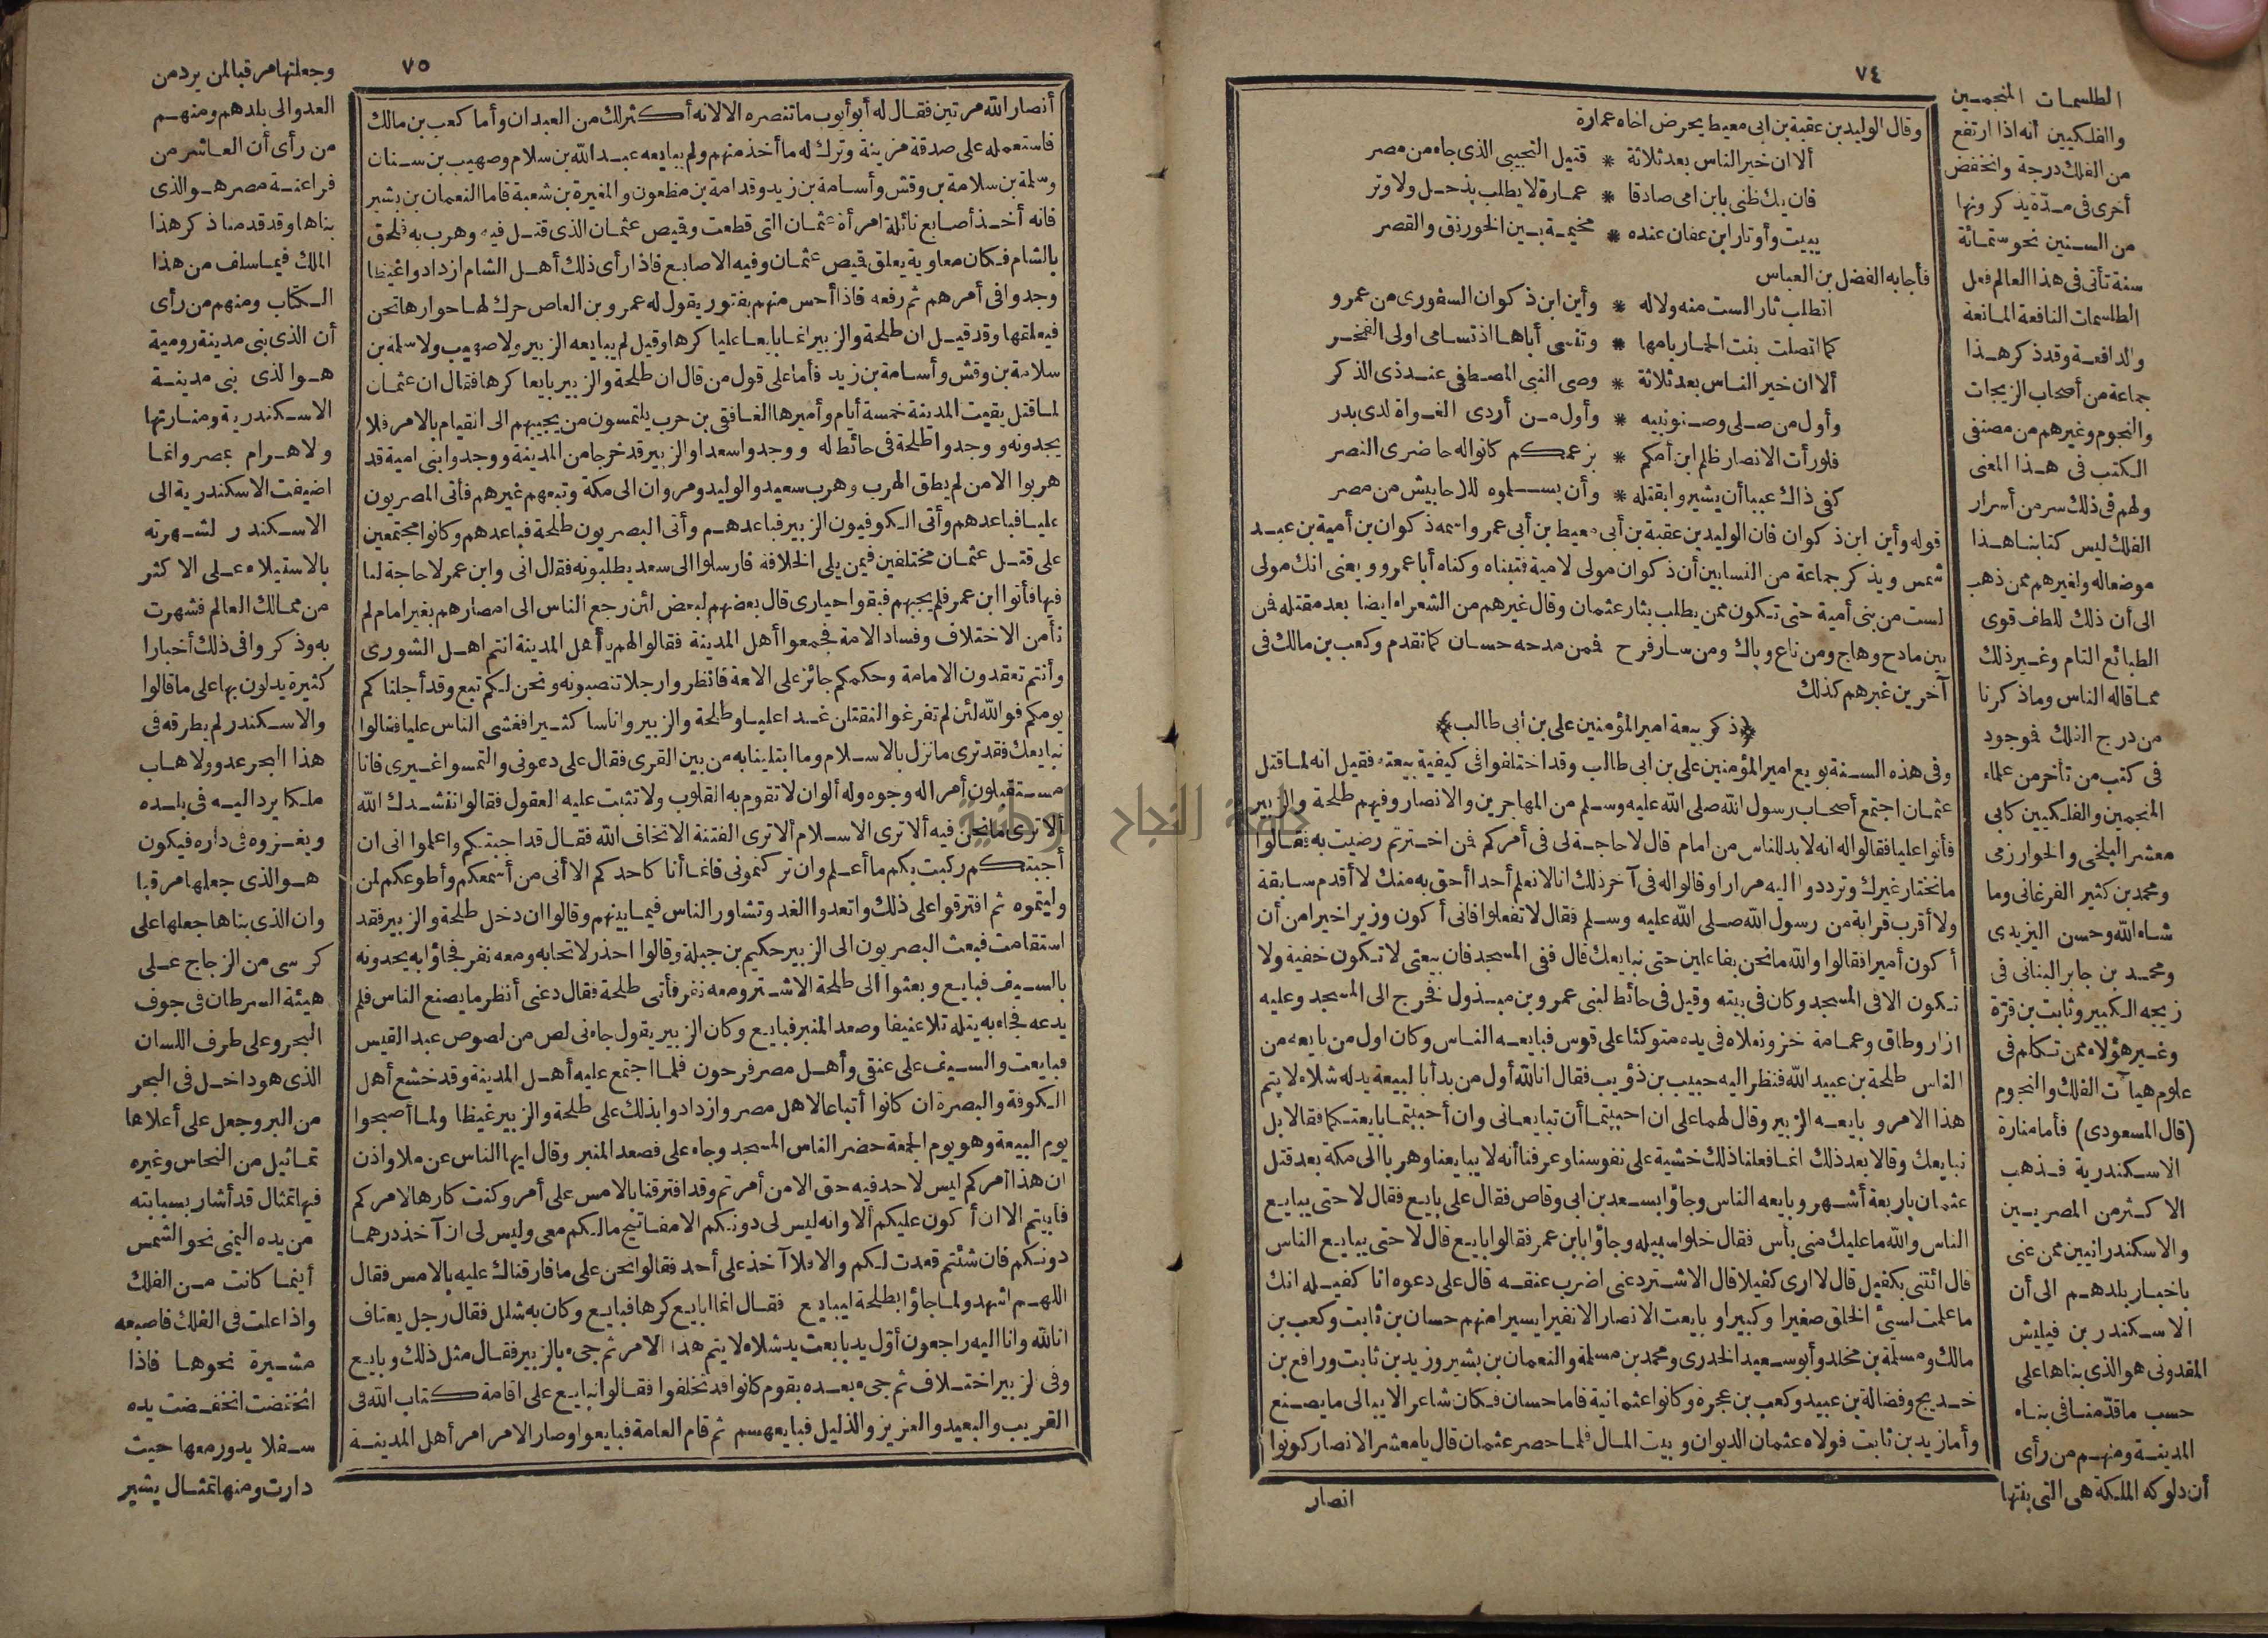 ٧٤
وقال الوليد بن عقبة بن ابى معيط يحرض اخاه عمارة
ألا ان خير الناس بعد ثلاثة * قتيل التجيبى الذى جاء من مصر
فان يك ظنى بابن امى صادقا * عمارة لا يطلب بذحل ولا وتر
يبيت وأوتار ابن عفان عنده * مخيمة بين الخورنق والقصر
فأجابه الفضل بن العباس
أتطلب ثارا لست منه ولا له * وأين ابن ذكوان الصفورى من عمرو
كما اتصلت بنت الحمار بامها * وتنسى أباها اذ تسامى اولى الفخر
ألا ان خير الناس بعد ثلاثة * وصى النبى المصطفى عند ذى الذكر
وأول من صلى وصنو نبيه * وأول من أردى الغواة لدى بدر
فلو رأت الانصار ظلم ابن أمكم * بزعمكم كانوا له حاضرى النصر
كفى ذاك عيبا أن يشيروا بقتله * وأن يسلموه للاحابيش من مصر
قوله وأين ابن ذكوان فان الوليد بن عقبة بن أبى معيط بن أبى عمرو اسمه ذكوان بن أمية بن عبد
شمس ويذكر جماعة من النسابين أن ذكوان مولى لامية فتبناه وكناه أبا عمرو ويعنى انك مولى
لست من بنى أمية حتى تكون ممن يطلب بثار عثمان وقال غيرهم من الشعراء ايضا بعد مقتله فن
بين مادح وهاج ومن ناع وباك ومن سار فرح فمن مدحه حسان كما تقدم وكعب بن مالك فى
آخرين غيرهم كذلك
﴿ذكر بيعة امير المؤمنين على بن أبى طالب﴾
وفى هذه السنة بويع امير المؤمنين على بن ابى طالب وقد اختلفوا فى كيفية بيعته فقيل انه لما قتل
عثمان اجتمع أصحاب رسول الله صلى الله عليه وسلم من المهاجرين والانصار وفيهم طلحة والزبير
فأتوا عليا فقالوا له انه لا بد للناس من امام قال لا حاجة لى فى أمركم فن اخترتم رضيت به فقالوا
ما نختار غيرك وترددوا اليه مرارا وقالوا له فى آخر ذلك انا لا نعلم أحدا أحق به منك لا أقدم سابقة
ولا أقرب قرابة من رسول الله صلى الله عليه وسلم فقال لا تفعلوا فانى أكون وزيرا خيرا من أن
أكون أميرا فقالوا والله ما نحن بفاعلين حتى نبايعك قال ففى المسجد فان بيعتى لا تكون خفية ولا
تكون الا فى المسجد وكان فى بيته وقيل فى حائط لبنى عمرو بن مبذول فخرج الى المسجد وعليه
ازار وطاق وعمامة خز ونعلاه فى يده متوكئا على قوس فبايعه الناس وكان اول من بايعه من
الناس طلحة بن عبيد الله فنظر اليه حبيب بن ذؤيب فقال انا لله أول من بدأ بالبيعة يد له شلاء لا يتم
هذا الامر وبايعه الزبير وقال لهما على ان احببتما أن تبايعانى وان أحببتما بايعتكما فقالا بل
نبايعك وقالا بعد ذلك انما فعلنا ذلك خشية على نفوسنا وعرفنا أنه لا يبايعنا وهربا الى مكة بعد قتل
عثمان باربعة أشهر وبايعه الناس وجاؤا بسعد بن ابى وقاص فقال على بايع فقال لا حتى يبايع
الناس والله ما عليك منى بأس فقال خلوا سبيله وجاؤا بابن عمر فقالوا بايع قال لا حتى يبايع الناس
قال ائتنى بكفيل قال لا ارى كفيلا قال الاشتر دعنى اضرب عنقه قال على دعوه انا كفيله انك
ما علمت لسيئ الخلق صغيرا وكبيرا وبايعت الانصار الا نفيرا يسيرا منهم حسان بن ثابت وكعب بن
مالك ومسلمة بن مخلد وأبو سعيد الخدرى ومحمد بن مسلمة والنعمان بن بشير وزيد بن ثابت ورافع بن
خديج وفضالة بن عبيد وكعب بن عجرة وكانوا عثمانية فاما حسان فكان شاعرا لا يبالى ما يصنع
وأما زيد بن ثابت فولاه عثمان الديوان وبيت المال فلما حصر عثمان قال يا معشر الانصار كونوا
انصار
الطلسمات المنجمين
والفلكيين أنه اذا ارتفع
من الفلك درجة وانخفض
أخرى فى مدّة يذكرونها
من السنين نحو ستمائة
سنة تأتى فى هذا العالم فعل
الطلسمات النافعة المانعة
والدافعة وقد ذكر هذا
جماعة من أصحاب الزيجات
والنجوم وغيرهم من مصنفى
الكتب فى هذا المعنى
ولهم فى ذلك سر من أسرار
الفلك ليس كتابنا هذا
موضعا له ولغيرهم ممن ذهب
الى أن ذلك للطف قوى
الطبائع التام وغير ذلك
مما قاله الناس وما ذكرنا
من درج الفلك فوجود
فى كتب من تأخر من علماء
المنجمين والفلكيين كابى
معشر البلخى والخوارزمى
ومحمد بن كثير الفرغانى وما
شاء الله وحسن اليزيدى
ومحمد بن جابر البتانى فى
زيجه الكبير وثابت بن قرّة
وغير هؤلاء ممن تكلم فى
علوم هيآت الفلك والنجوم
(قال المسعودى) فأما منارة
الاسكندرية فذهب
الاكثر من المصريين
والاسكندرانيين ممن عنى
باخبار بلدهم الى أن
الاسكندر بن فيلبش
المقدونى هو الذى بناها على
حسب ما قدّمنا فى بناء
المدينة ومنهم من رأى
أن دلوكه الملكة هى التى بنتها
٧٥
أنصار الله مرتين فقال له أبو أيوب ما تنصره الا لانه أكثر لك من العبدان وأما كعب بن مالك
فاستعمله على صدقة مزينة وترك له ما أخذ منهم ولم يبايعه عبد الله بن سلام وصهيب بن سنان
وسلمة بن سلامة بن وقش وأسامة بن زيد وقدامة بن مظعون والمغيرة بن شعبة فاما النعمان بن بشير
فانه أخذ أصابع نائلة امرأة عثمان التى قطعت وقيص عثمان الذى قتل فيه وهرب به فلحق
بالشام فكان معاوية يعلق قيص عثمان وفيه الاصابع فاذا رأى ذلك أهل الشام ازدادوا غيظا
وجدوا فى أمرهم ثم رفعه فاذا أحس منهم بفتور يقول له عمرو بن العاص حرك لها حوارها تحن
فيعلقها وقد قيل ان طلحة والزبير انما بايعا عليا كرها وقيل لم يبايعه الزبير ولا صهيب ولا سلمة بن
سلامة بن وقش وأسامة بن زيد فأما على قول من قال ان طلحة والزبير بايعا كرها فقال ان عثمان
لما قتل بقيت المدينة خمسة أيام وأميرها الغافقى بن حرب يلتمسون من يجيبهم الى القيام بالامر فلا
يجدونه ووجدوا طلحة فى حائط له ووجدوا سعدا والزبير قد خرجا من المدينة ووجدوا بنى امية قد
هربوا الا من لم يطق الهرب وهرب سعيد والوليد ومروان الى مكة وتبعهم غيرهم فأتى المصريون
عليا فباعدهم وأتى الكوفيون الزبير فباعدهم وأتى البصريون طلحة فباعدهم وكانوا مجتمعين
على قتل عثمان مختلفين فيمن يلى الخلافة فارسلوا الى سعد يطلبونه فقال انى وابن عمر لا حاجة لنا
فيها فأتوا ابن عمر فلم يجبهم فبقوا حيارى قال بعضهم لبعض لئن رجع الناس الى امصارهم بغير امام لم
نأمن الاختلاف وفساد الامة فجمعوا أهل المدينة فقالوا لهم يا أهل المدينة انتم اهل الشورى
وأنتم تعقدون الامامة وحكمكم جائز على الامة فانظروا رجلا تنصبونه ونحن لكم تبع وقد أجلناكم
يومكم فوالله لئن لم تفرغوا لنقتلن غدا عليا وطلحة والزبير واناسا كثيرا فغشى الناس عليا فقالوا
نبايعك فقد ترى ما نزل بالاسلام وما ابتلينا به من بين القرى فقال على دعونى والتمسوا غيرى فانا
مستقبلون أمرا له وجوه وله ألوان لا تقوم به القلوب ولا تثبت عليه العقول فقالوا ننشدك الله
ألا ترى ما نحن فيه ألا ترى الاسلام ألا ترى الفتنة الا تخاف الله فقال قد اجبتكم واعلموا انى ان
أجبتكم ركبت بكم ما أعلم وان تركتمونى فانما أنا كاحدكم الا أنى من أسمعكم وأطوعكم لمن
وليتموه ثم افترقوا على ذلك واتعدوا الغد وتشاور الناس فيما بينهم وقالوا ان دخل طلحة والزبير فقد
استقامت فبعث البصريون الى الزبير حكيم بن جبلة وقالوا احذر لا تحابه ومعه نفر فجاؤا به يحدونه
بالسيف فبايع وبعثوا الى طلحة الاشتر ومعه نفر فأتى طلحة فقال دعنى أنظر ما يصنع الناس فلم
يدعه فجاء به يتله تلا عنيفا وصعد المنبر فبايع وكان الزبير يقول جاءنى لص من لصوص عبد القيس
فبايعت والسيف على عنقى وأهل مصر فرحون فلما اجتمع عليه أهل المدينة وقد خشع أهل
الكوفة والبصرة ان كانوا أتباعا لاهل مصر وازدادوا بذلك على طلحة والزبير غيظا ولما أصبحوا
يوم البيعة وهو يوم الجمعة حضر الناس المسجد وجاء على فصعد المنبر وقال ايها الناس عن ملا واذن
ان هذا امركم ليس لاحد فيه حق الا من أمرتم وقد افترقنا بالامس على أمر وكنت كارها لامركم
فأبيتم الا ان أكون عليكم ألا وانه ليس لى دونكم الا مفاتيح مالكم معى وليس لى ان آخذ درهما
دونكم فان شئتم قعدت لكم والا فلا آخذ على أحد فقالوا نحن على ما فارقناك عليه بالامس فقال
اللهم اشهد ولما جاؤا بطلحة ليبايع فقال انما ابايع كرها فبايع وكان به شلل فقال رجل يعتاف
انا لله وانا اليه راجعون أوّل يد بايعت يد شلاء لا يتم هذا الامر ثم جىء بالزبير فقال مثل ذلك وبايع
وفى الزبير اختلاف ثم جىء بعده بقوم كانوا قد تخلفوا فقالوا نبايع على اقامة كتاب الله فى
القريب والبعيد والعزيز والذليل فبايعهم ثم قام العامة فبايعوا وصار الامر امر أهل المدينة
وجعلتها مرقبا لمن يرد من
العدو الى بلدهم ومنهم
من رأى أن العاشر من
فراعنة مصر هو الذى
بناها وقد قدمنا ذكر هذا
الملك فيما سلف من هذا
الكتاب ومنهم من رأى
أن الذى بنى مدينة رومية
هو الذى بنى مدينة
الاسكندرية ومنارتها
والاهرام بمصر وانما
اضيفت الاسكندرية الى
الاسكندر لشهرته
بالاستيلاء على الاكثر
من ممالك العالم فشهرت
به وذكروا فى ذلك أخبارا
كثيرة يدلون بها على ما قالوا
والاسكندر لم يطرقه فى
هذا البحر عدو ولا هاب
ملكا يرد اليه فى بلده
ويغزوه فى داره فيكون
هو الذى جعلها مرقبا
وان الذى بناها جعلها على
كرسى من الزجاج على
هيئة السرطان فى جوف
البحر وعلى طرف اللسان
الذى هو داخل فى البحر
من البر وجعل على أعلاها
تماثيل من النحاس وغيره
فيها تمثال قد أشار بسبابته
من يده اليمنى نحو الشمس
أينما كانت من الفلك
واذا علت فى الفلك فاصبعه
مشيرة نحوها فاذا
انخفضت انخفضت يده
سفلا يدور معها حيث
دارت ومنها تمثال يشير
جامعة النجاح الوطنية